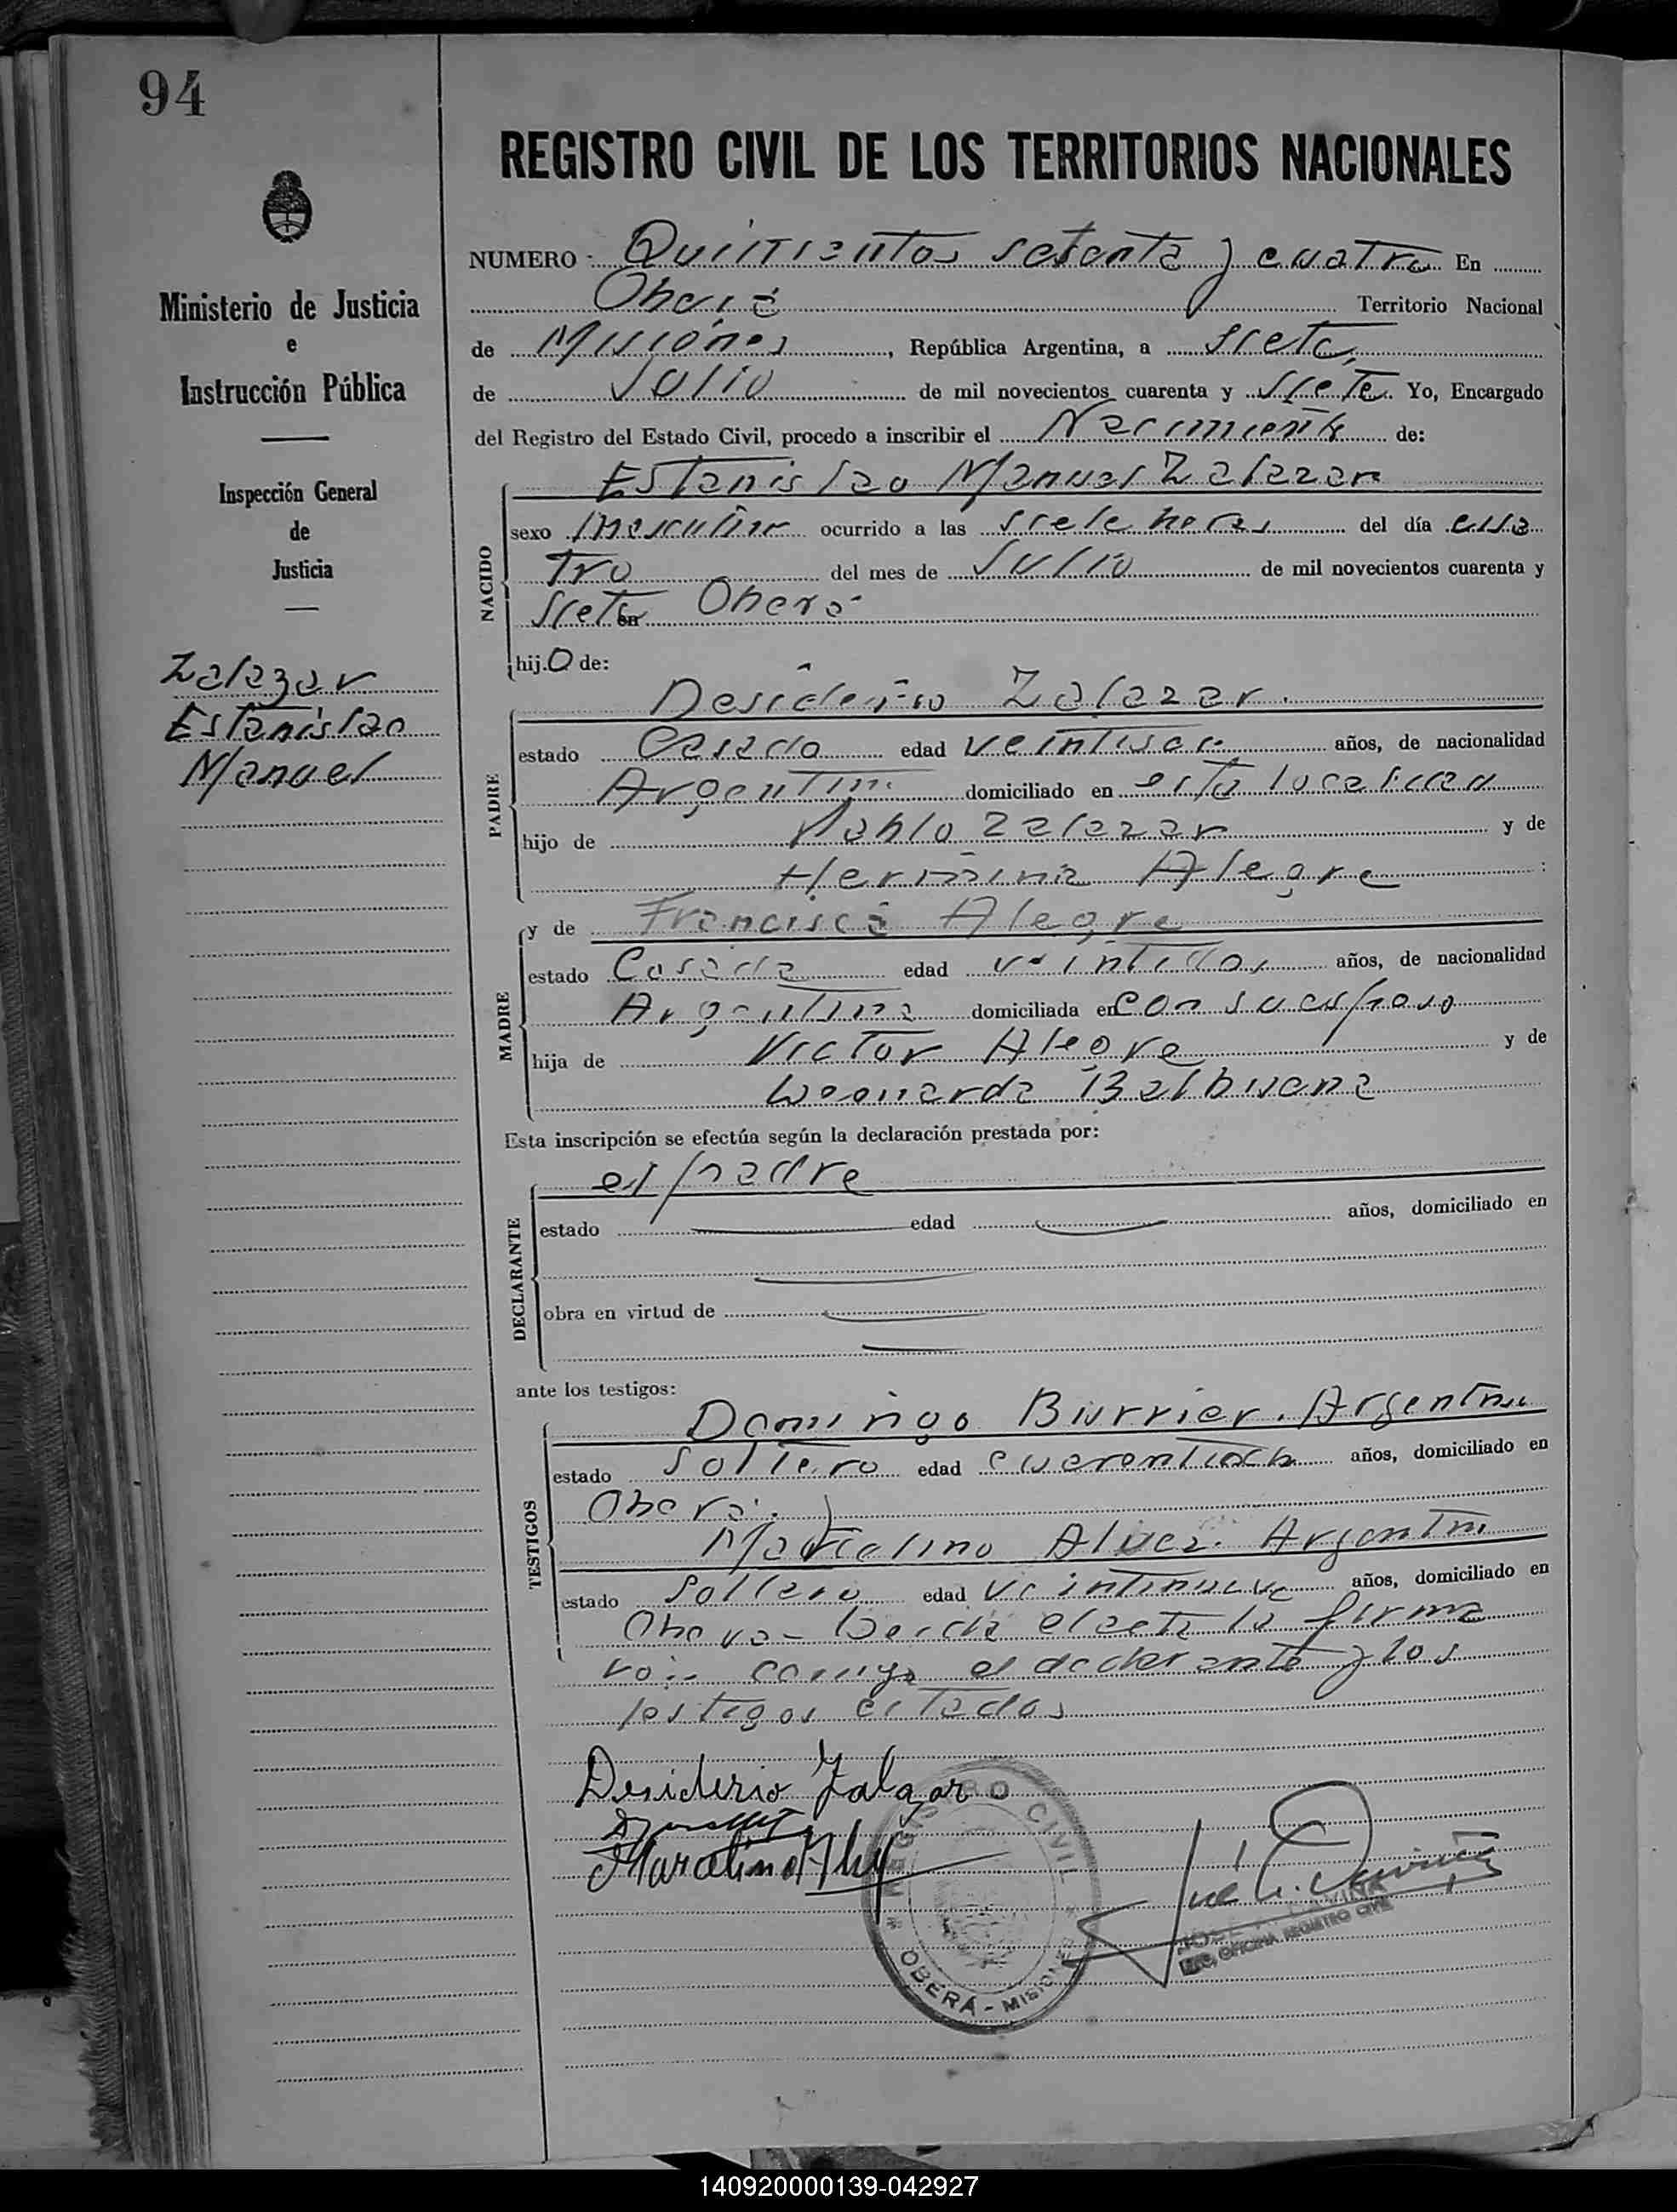 94
REGISTRO CIVIL DE LOS TERRITORIOS NACIONALES
Ministerio de Justicia
e
Instrucción Pública
Inspección General
de
Justicia
Zalazar
Estanislao
Manuel
NUMERO Quinientos setenta y cuatro En
Oberá Territorio Nacional
de Misiones, República Argentina, a siete
de Julio de mil novecientos cuarenta y siete Yo, Encargado
del Registro del Estado Civil, procedo a inscribir el Nacimiento de:
Estanislao Manuel Zalazar
NACIDO
sexo Masculino ocurrido a las siete horas del día cua
tro del mes de Julio de mil novecientos cuarenta y
siete en Oberá
hijo de:
Desiderio Zalazar
PADRE
estado Casado edad años, de nacionalidad
Argentina domiciliado en esta localidad
hijo de Pablo Zalazar y de
Herminia Alegre
y de Francisca Alegre
MADRE
estado Casada edad veintidos años, de nacionalidad
Argentina domiciliada en con su esposo
hija de Victor Alegre y de
Leonarda Balbuena
Esta inscripción se efectúa según la declaración prestada por:
el padre
DECLARANTE
estado edad años, domiciliado en
obra en virtud de
ante los testigos:
Domingo Burrier. Argentino
TESTIGOS
estado Soltero edad años, domiciliado en
Oberá y
Marcelino Alvez. Argentino
estado Soltero edad veintinueve años, domiciliado en
Oberá - Leida el acta la firma
ron conmigo el declarante y los
testigos citados
Desiderio Zalazar
Marcelino
REGISTRO CIVIL
OBERÁ - MISIONES
OFICINA REGISTRO CIVIL
140920000139-042927